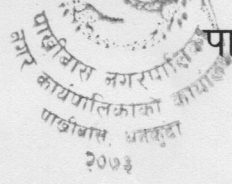 पाखीबास नगरपालिका
नगर कार्यपालिकाको कार्यालय
पाखीबास, धनकुटा
२०७३
पा